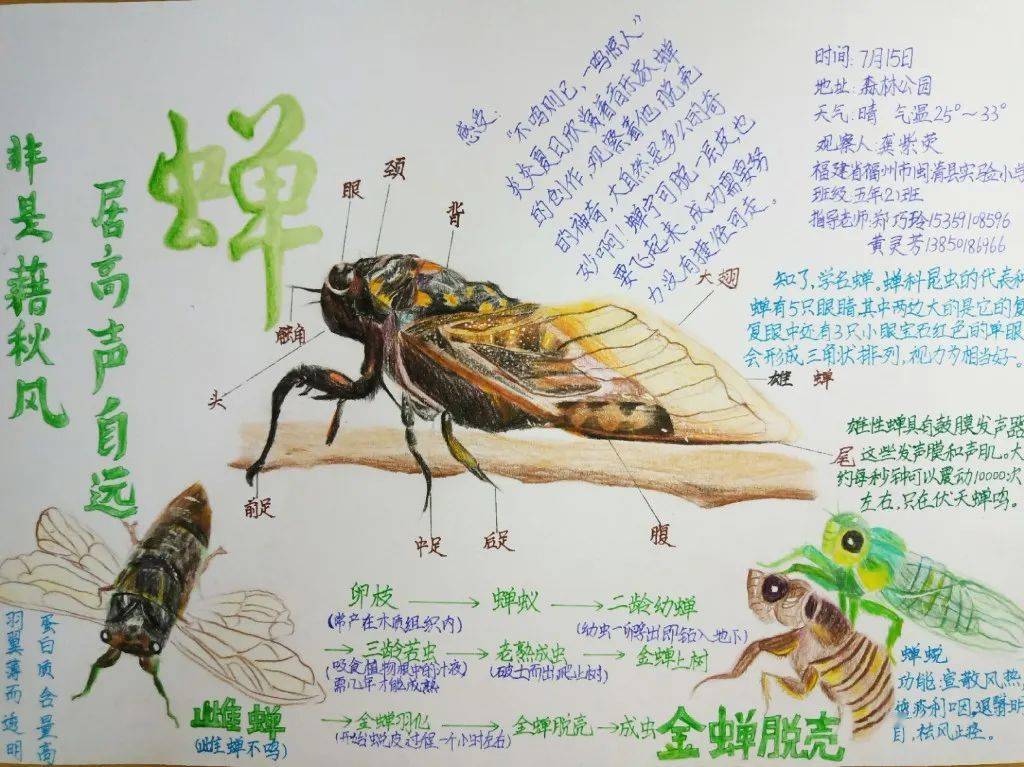 蝉
居高声自远
非是藉秋风
感受:
"不鸣则已,一鸣惊人"
炎炎夏日欣赏着音乐家蝉
的创作,观察着他脱壳
的神奇,大自然是多么的奇
妙啊!蝉宁可脱一层皮也
要飞起来。成功需要努
力没有捷径可走。
时间:7月15日
地址:森林公园
天气:晴 气温25°~33°
观察人:龚紫荧
福建省福州市闽清县实验小学
班级:五年21班
指导老师:郑巧玲15359108596
黄灵芳13850186966
知了,学名蝉。蝉科昆虫的代表种
蝉有5只眼睛,其中两边大的是它的复
复眼中还有3只小眼宝石红色的单眼
会形成三角状排列,视力方相当好。
雄性蝉具有鼓膜发声器
这些发声膜和声肌。大
约每秒钟可以震动10000次
左右,只在伏天蝉鸣。
眼
颈
背
大翅
触角
头
雄蝉
尾
前足
中足
后足
腹
卵枝→蝉蚁→二龄幼蝉
(常产在木质组织内)
(幼虫一孵出即钻入地下)
→三龄若虫→老熟成虫→金蝉上树
(吸食植物根中的汁液)
需几年才能成熟
(破土而出爬上树)
→金蝉羽化→金蝉脱壳→成虫
(开始蜕皮过程一个小时左右)
雌蝉
(雌蝉不鸣)
蛋白质含量高
羽翼薄而透明
金蝉脱壳
蝉蜕
功能:宣散风热,
透疹利咽,退翳明
目,祛风止痉。